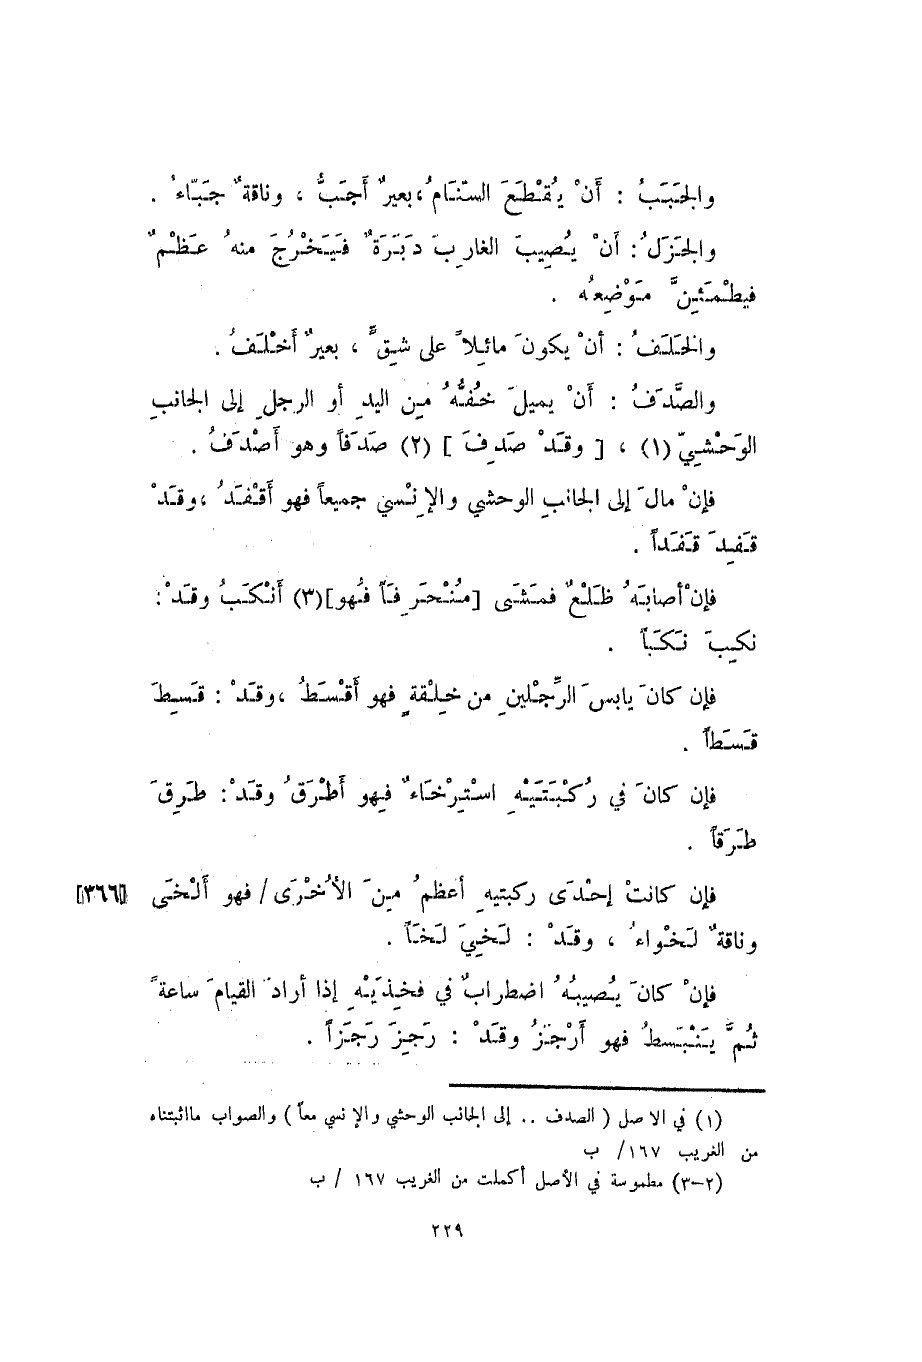 والجَبَبُ : أَنْ يُقْطَعَ السَّنَامُ،بعيرٌ أَجَبُّ ، وناقةٌ جَبّاءُ .
والجَزَلُ: أنْ يُصِيبَ الغاربَ دَبَرَةٌ فيَخْرُجَ منهُ عَظْمٌ
فيطْمَئِنَّ مَوْضِعُه .
والخَلَفُ : أنْ يكونَ مائِلاً على شِقٍّ ، بعيرٌ أَخْلَفُ .
والصَّدَفُ : أَنْ يميلَ خُفُّهُ مِن اليدِ أو الرجلِ إلى الجانبِ
الوَحْشيِّ (١) ، [ وقَدْ صَدِفَ ] (٢) صَدَفاً وهو أَصْدَفُ .
فإنْ مالَ إلى الجانبِ الوحشي والإنْسي جميعاً فهو أَقْفَدُ ،وقَدْ
قَفِدَ قَفَداً .
فإنْ أصابَهُ ظَلْعٌ فمَشَى [مُنْحَرِفَاً فهو](٣) أَنْكَبُ وقَدْ:
نكِبَ نَكَبَاً .
فإن كانَ يابسَ الرِّجْلينِ من خِلْقةٍ فهو أَقْسَطُ ،وقَدْ : قَسِطَ
قَسَطاً .
فإن كانَ في رُكْبَتَيْهِ اسْتِرْخَاءٌ فهو أَطْرَقُ وقَدْ: طَرِقَ
طَرَقاً .
فإن كانتْ إحْدَى ركبتيهِ أعظمُ مِنَ الأُخْرَى / فهو أَلْخَى [٣٦٦]
وناقةٌ لَخْواءُ ، وقَدْ : لَخِيَ لَخَاً .
فإنْ كانَ يُصِيبُهُ اضطرابٌ في فخِذَيْهِ إذا أرادَ القيامَ ساعةً
ثُمَّ يَنْبَسطُ فهو أَرْجَزُ وقَدْ : رَجِزَ رَجَزاً .
(١) في الاصل ( الصدف .. إلى الجانب الوحشي والإنسي معاً ) والصواب مااثبتناه
من الغريب ١٦٧/ ب
(٢–٣) مطموسة في الأصل أكملت من الغريب ١٦٧ / ب
٢٢٩